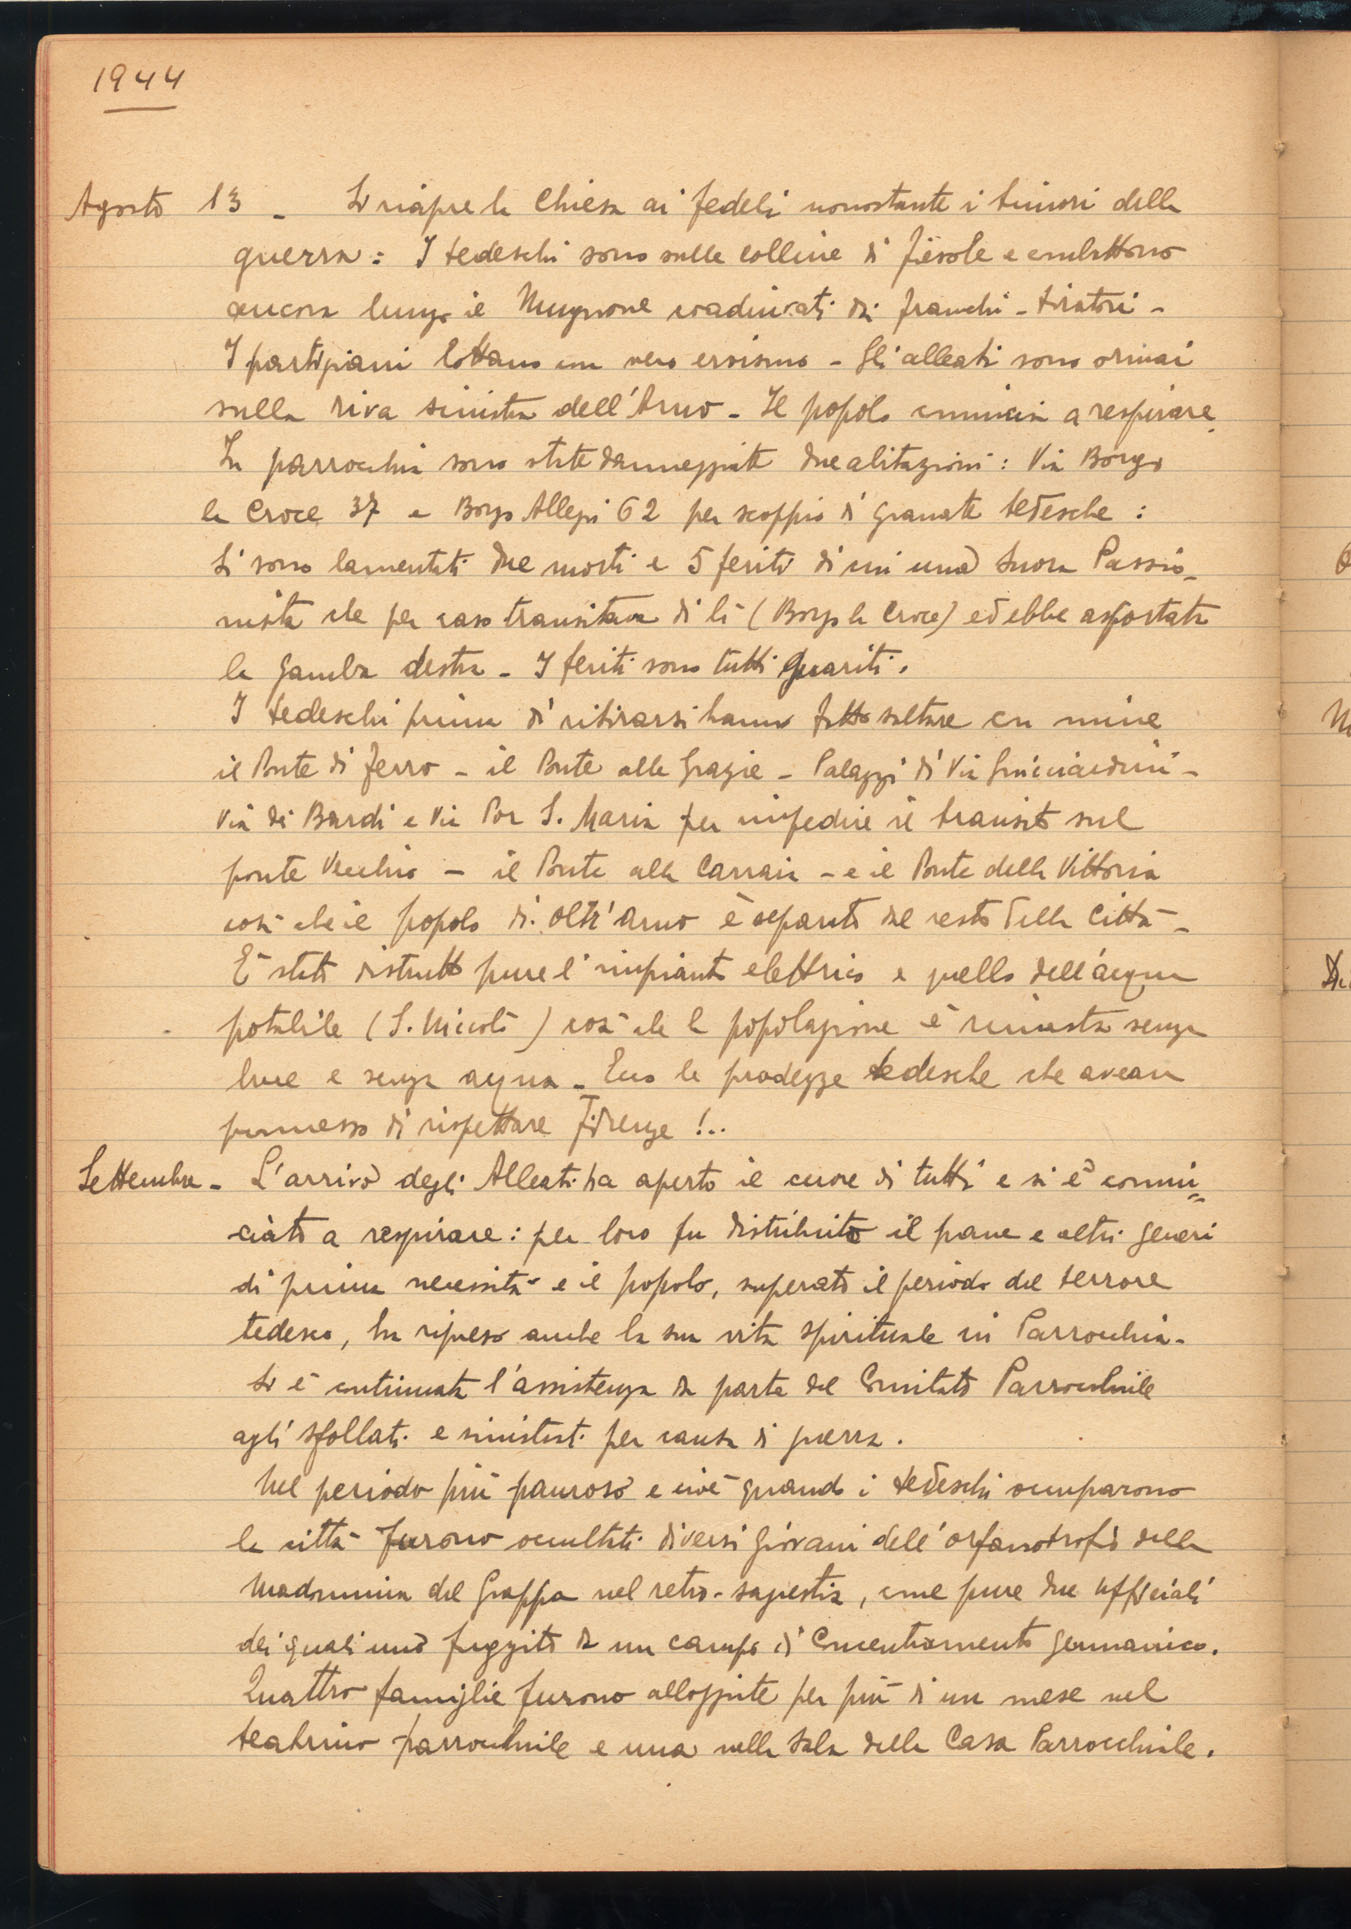 1944
Agosto 13 - Si riapre la Chiesa ai fedeli nonostante i timori della
guerra: I tedeschi sono sulle colline di Fiesole e combattono
ancora lungo il Mugnone coadiuvati dai franchi-tiratori -
I partigiani lottano con vero eroismo - Gli alleati sono ormai
sulla riva sinistra dell'Arno - Il popolo comincia a respirare.
In parrocchia sono state danneggiate due abitazioni: Via Borgo
la Croce 37 e Borgo Allegri 62 per scoppio di granate tedesche:
Si sono lamentati due morti e 5 feriti di cui una Suora Passio-
nista che per caso transitava di lì (Borgo la Croce) ed ebbe asportata
la gamba destra - I feriti sono tutti guariti.
I tedeschi prima di ritirarsi hanno fatto saltare con mine
il Ponte di ferro - il Ponte alle Grazie - Palazzi di Via Guicciardini -
Via de Bardi e Via Por S. Maria per impedire il transito sul
ponte Vecchio - il Ponte alla Carraia - e il Ponte della Vittoria
così che il popolo di Oltr'arno è separato dal resto della Città -
È stato distrutto pure l'impianto elettrico e quello dell'acqua
potabile (S. Niccolò) così che la popolazione è rimasta senza
luce e senza acqua - Ecco le prodezze tedesche che avean
promesso di rispettare Firenze!..
Settembre - L'arrivo degli Alleati ha aperto il cuore di tutti e si è comin=
ciato a respirare: per loro fu distribuito il pane e altri generi
di prima necessità e il popolo, superato il periodo del terrore
tedesco, ha ripreso anche la sua vita spirituale in Parrocchia -
Si è continuata l'assistenza da parte del Comitato Parrocchiale
agli sfollati e sinistrati per causa di guerra.
Nel periodo più pauroso e cioè quando i tedeschi occuparono
la città furono occultati diversi giovani dell'orfanotrofio della
Madonnina del Grappa nel retro-sagrestia, come pure due ufficiali
dei quali uno fuggito da un campo di Concentramento germanico.
Quattro famiglie furono alloggiate per più di un mese nel
teatrino parrocchiale e una nella Sala della Casa Parrocchiale.